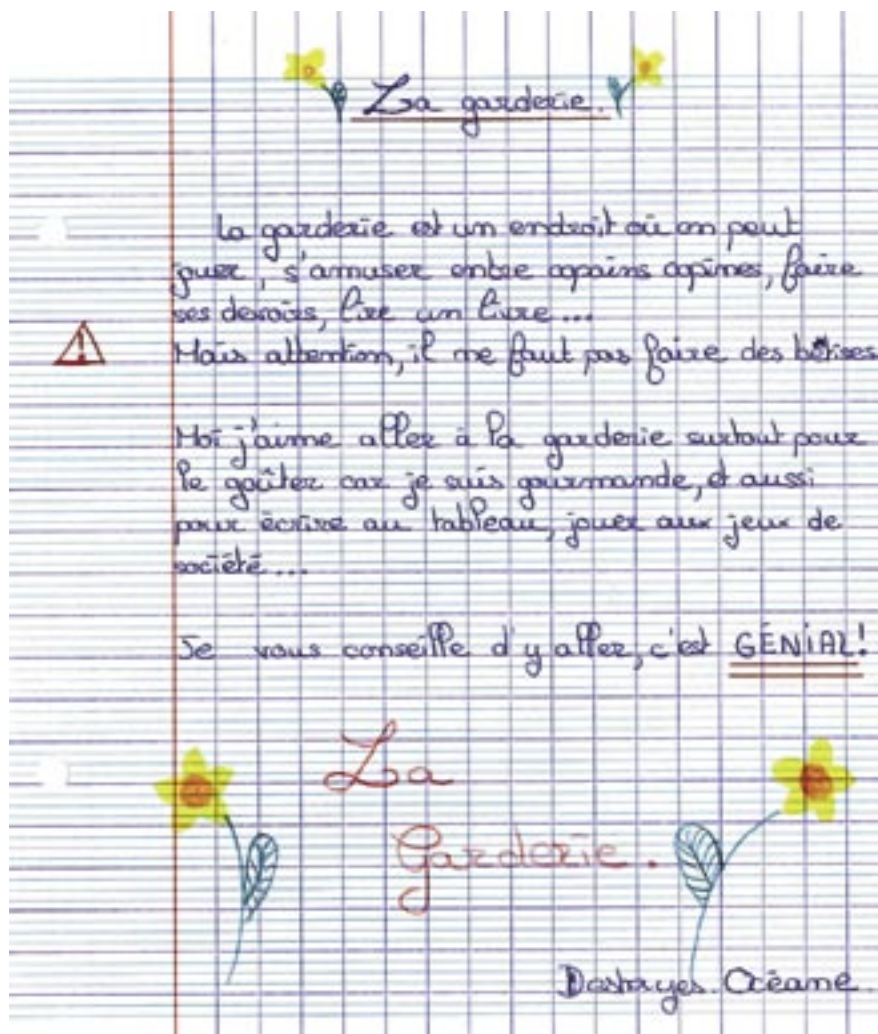 La garderie.
La garderie est un endroit où on peut
jouer, s'amuser entre copains copines, faire
ses devoirs, lire un livre...
Mais attention, il ne faut pas faire des bêtises
Moi j'aime aller à la garderie surtout pour
le goûter car je suis gourmande, et aussi
pour écrire au tableau, jouer aux jeux de
société...
Je vous conseille d'y aller, c'est GÉNIAL!
La
Garderie.
Océane.